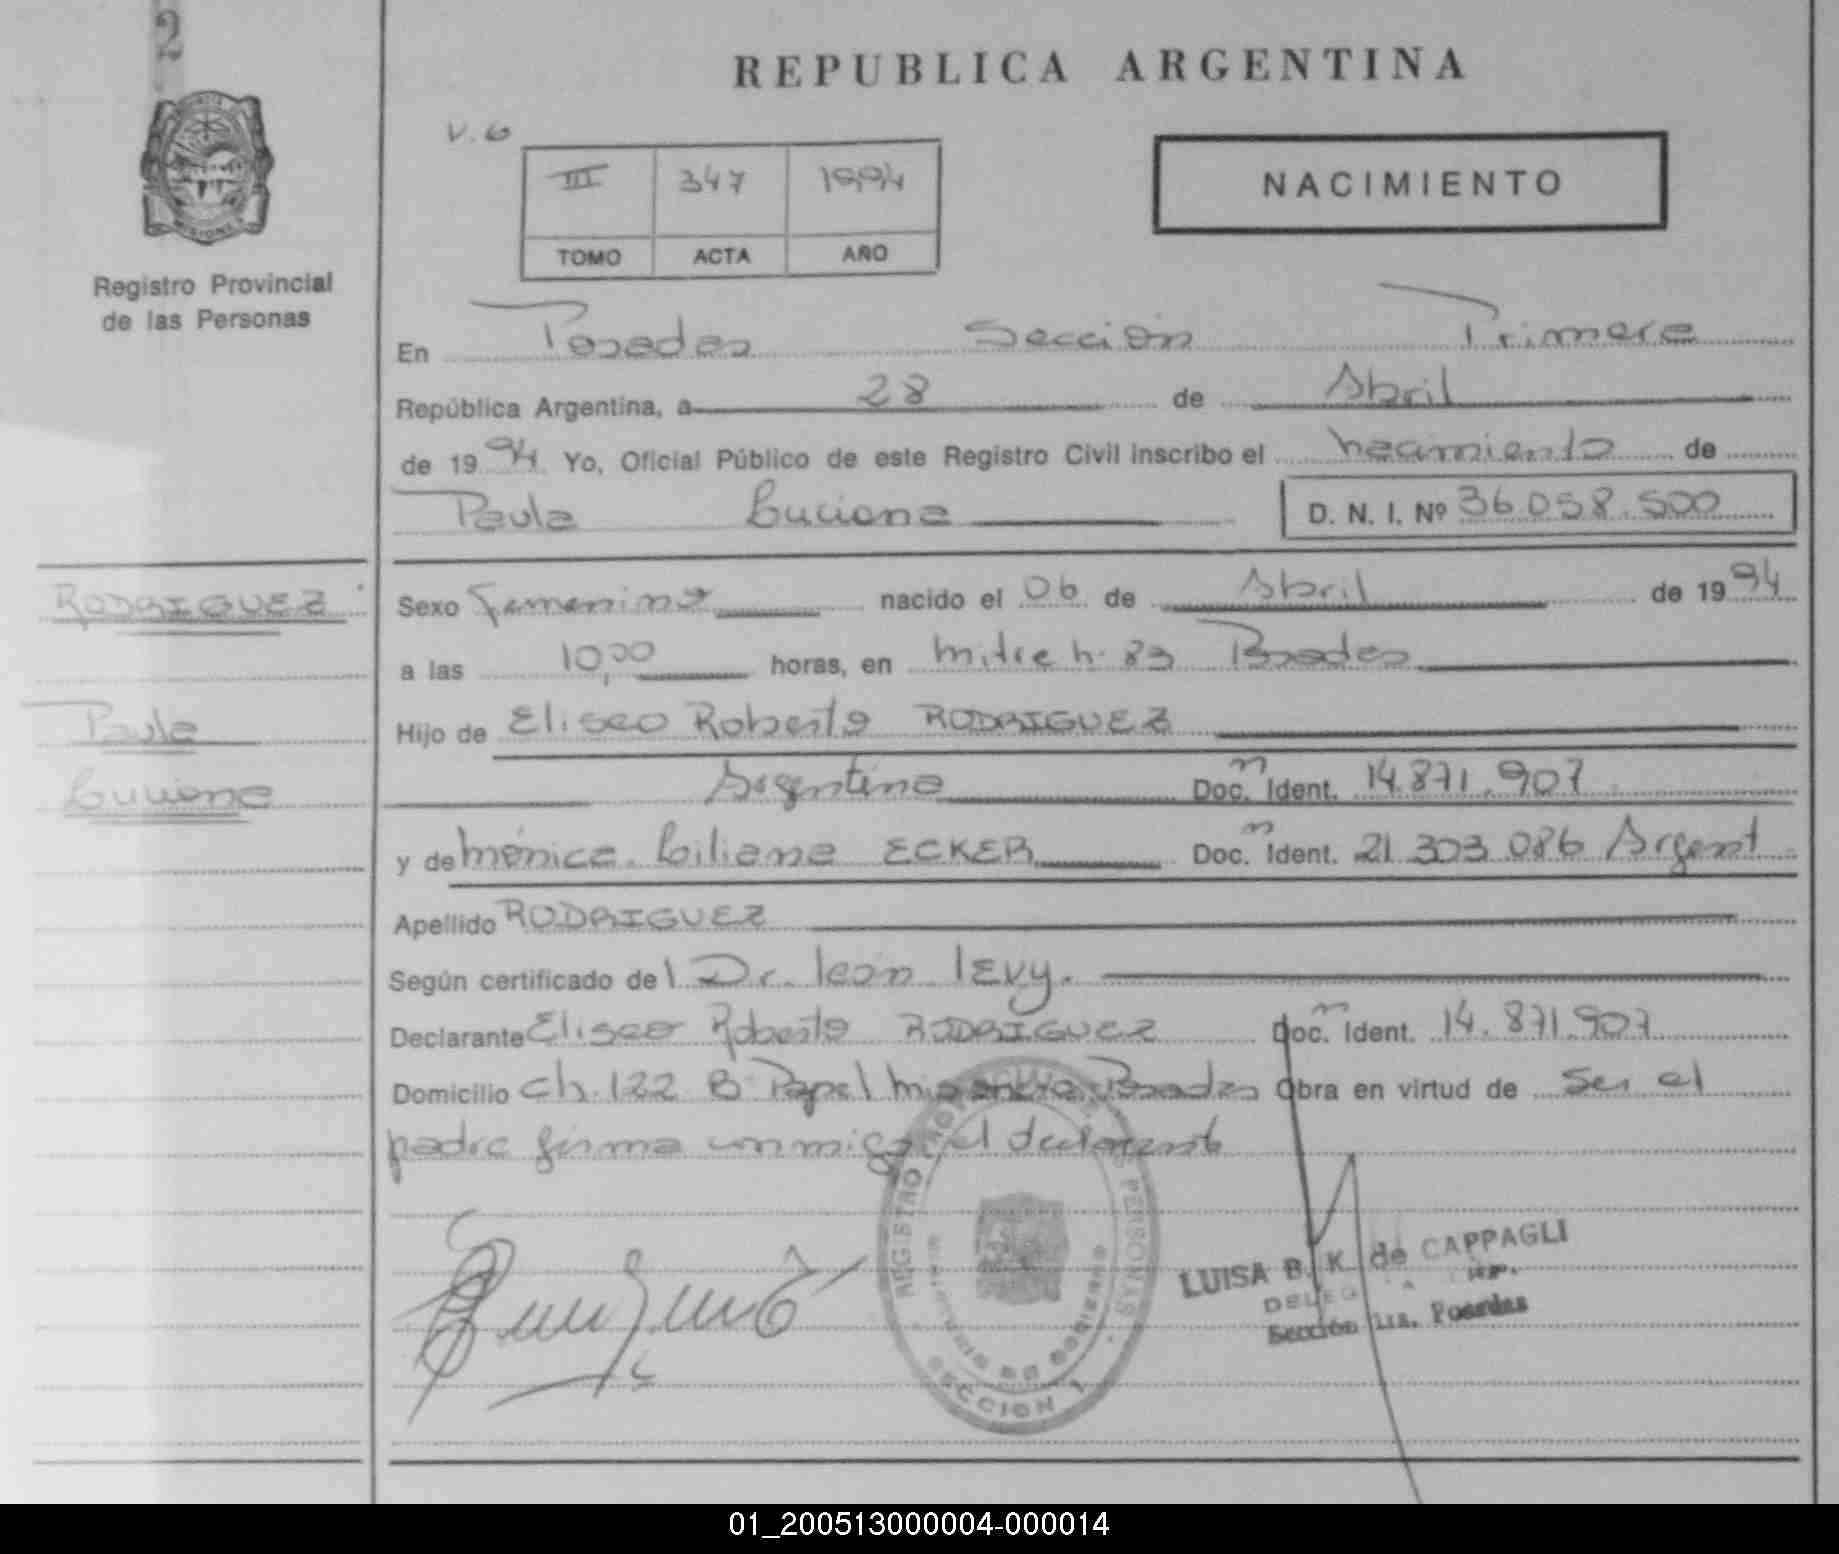 2
REPUBLICA ARGENTINA
V. 6
III 347 1994
TOMO ACTA AÑO
NACIMIENTO
MISIONES
Registro Provincial
de las Personas
En Posadas Sección Primera
República Argentina, a 28 de Abril
de 1994 Yo, Oficial Público de este Registro Civil inscribo el nacimiento de
Paula Luciana D. N. I. Nº 36.058.500
RODRIGUEZ
Paula
Luciana
Sexo Femenino nacido el 06 de Abril de 1994
a las 10,00 horas, en Mitre n. 83 Posadas
Hijo de Eliseo Roberto RODRIGUEZ
Argentina Doc. n Ident. 14.871.907
y de Mónica Liliana ECKER Doc. n Ident. 21.303.086 Argent
Apellido RODRIGUEZ
Según certificado del Dr. León Levy.
Declarante Eliseo Roberto RODRIGUEZ Doc. n Ident. 14.871.907
Domicilio Ch. 122 B Papel Misionero Posadas Obra en virtud de Ser el
padre firma conmigo el declarante
REGISTRO PROVINCIAL DE LAS PERSONAS
SECCION 1
LUISA B. K. de CAPPAGLI
Sección 1ra. Posadas
01_200513000004-000014